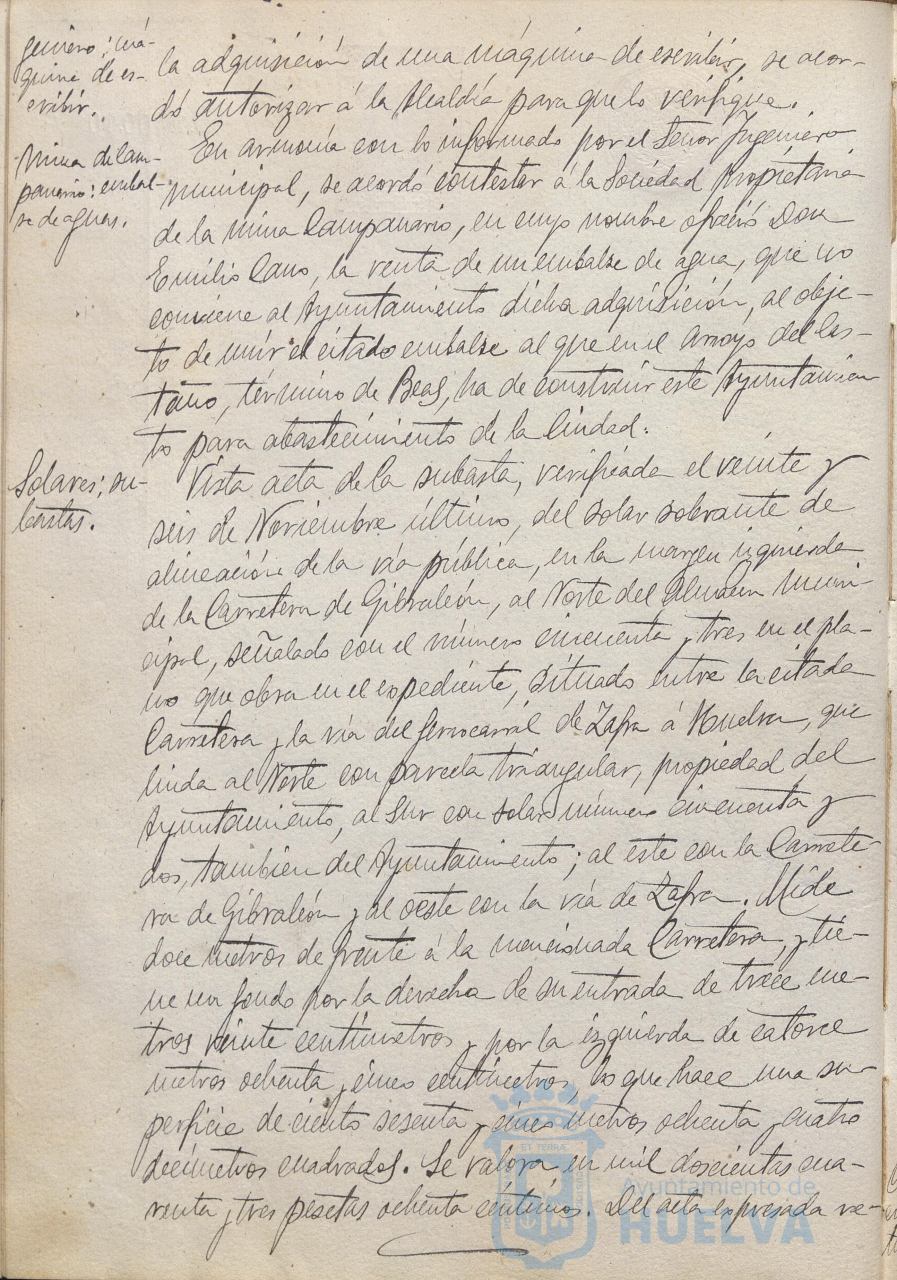 geniero; má-
quina de es-
cribir.
la adquisición de una máquina de escribir, se acor-
dó autorizar á la Alcaldía para que lo verifique.
Mina de Cam-
panario: embal-
se de aguas.
En armonía con lo informado por el Señor Ingeniero
municipal, se acordó contestar á la Sociedad propietaria
de la mina Campanario, en cuyo nombre ofreció Don
Emilio Cano, la venta de un embalse de agua, que no
conviene al Ayuntamiento dicha adquisición, al obje-
to de unir el citado embalse al que en el arroyo del Cas-
taño, término de Beas, ha de construir este Ayuntamien
to para abastecimiento de la Ciudad.
Solares; su-
bastas.
Vista acta de la subasta, verificada el veinte y
seis de Noviembre último, del solar sobrante de
alineación de la vía pública, en la margen izquierda
de la Carretera de Gibraleón, al Norte del Almacén Muni-
cipal, señalado con el número cincuenta y tres en el pla-
no que obra en el expediente, situado entre la citada
Carretera y la vía del ferrocarril de Zafra á Huelva, que
linda al Norte con parcela triangular, propiedad del
Ayuntamiento, al Sur con solar número cincuenta y
dos, tambien del Ayuntamiento; al este con la Carrete-
ra de Gibraleón y al oeste con la vía de Zafra. Mide
doce metros de frente á la mencionada Carretera, y tie-
ne un fondo por la derecha de su entrada de trece me-
tros veinte centímetros y por la izquierda de catorce
metros ochenta y cinco centímetros, lo que hace una su-
perficie de ciento sesenta y cinco metros ochenta y cuatro
decímetros cuadrados. Se valora en mil doscientas cua-
renta y tres pesetas ochenta céntimos. Del acta expresada re-
Ayuntamiento de
HUELVA